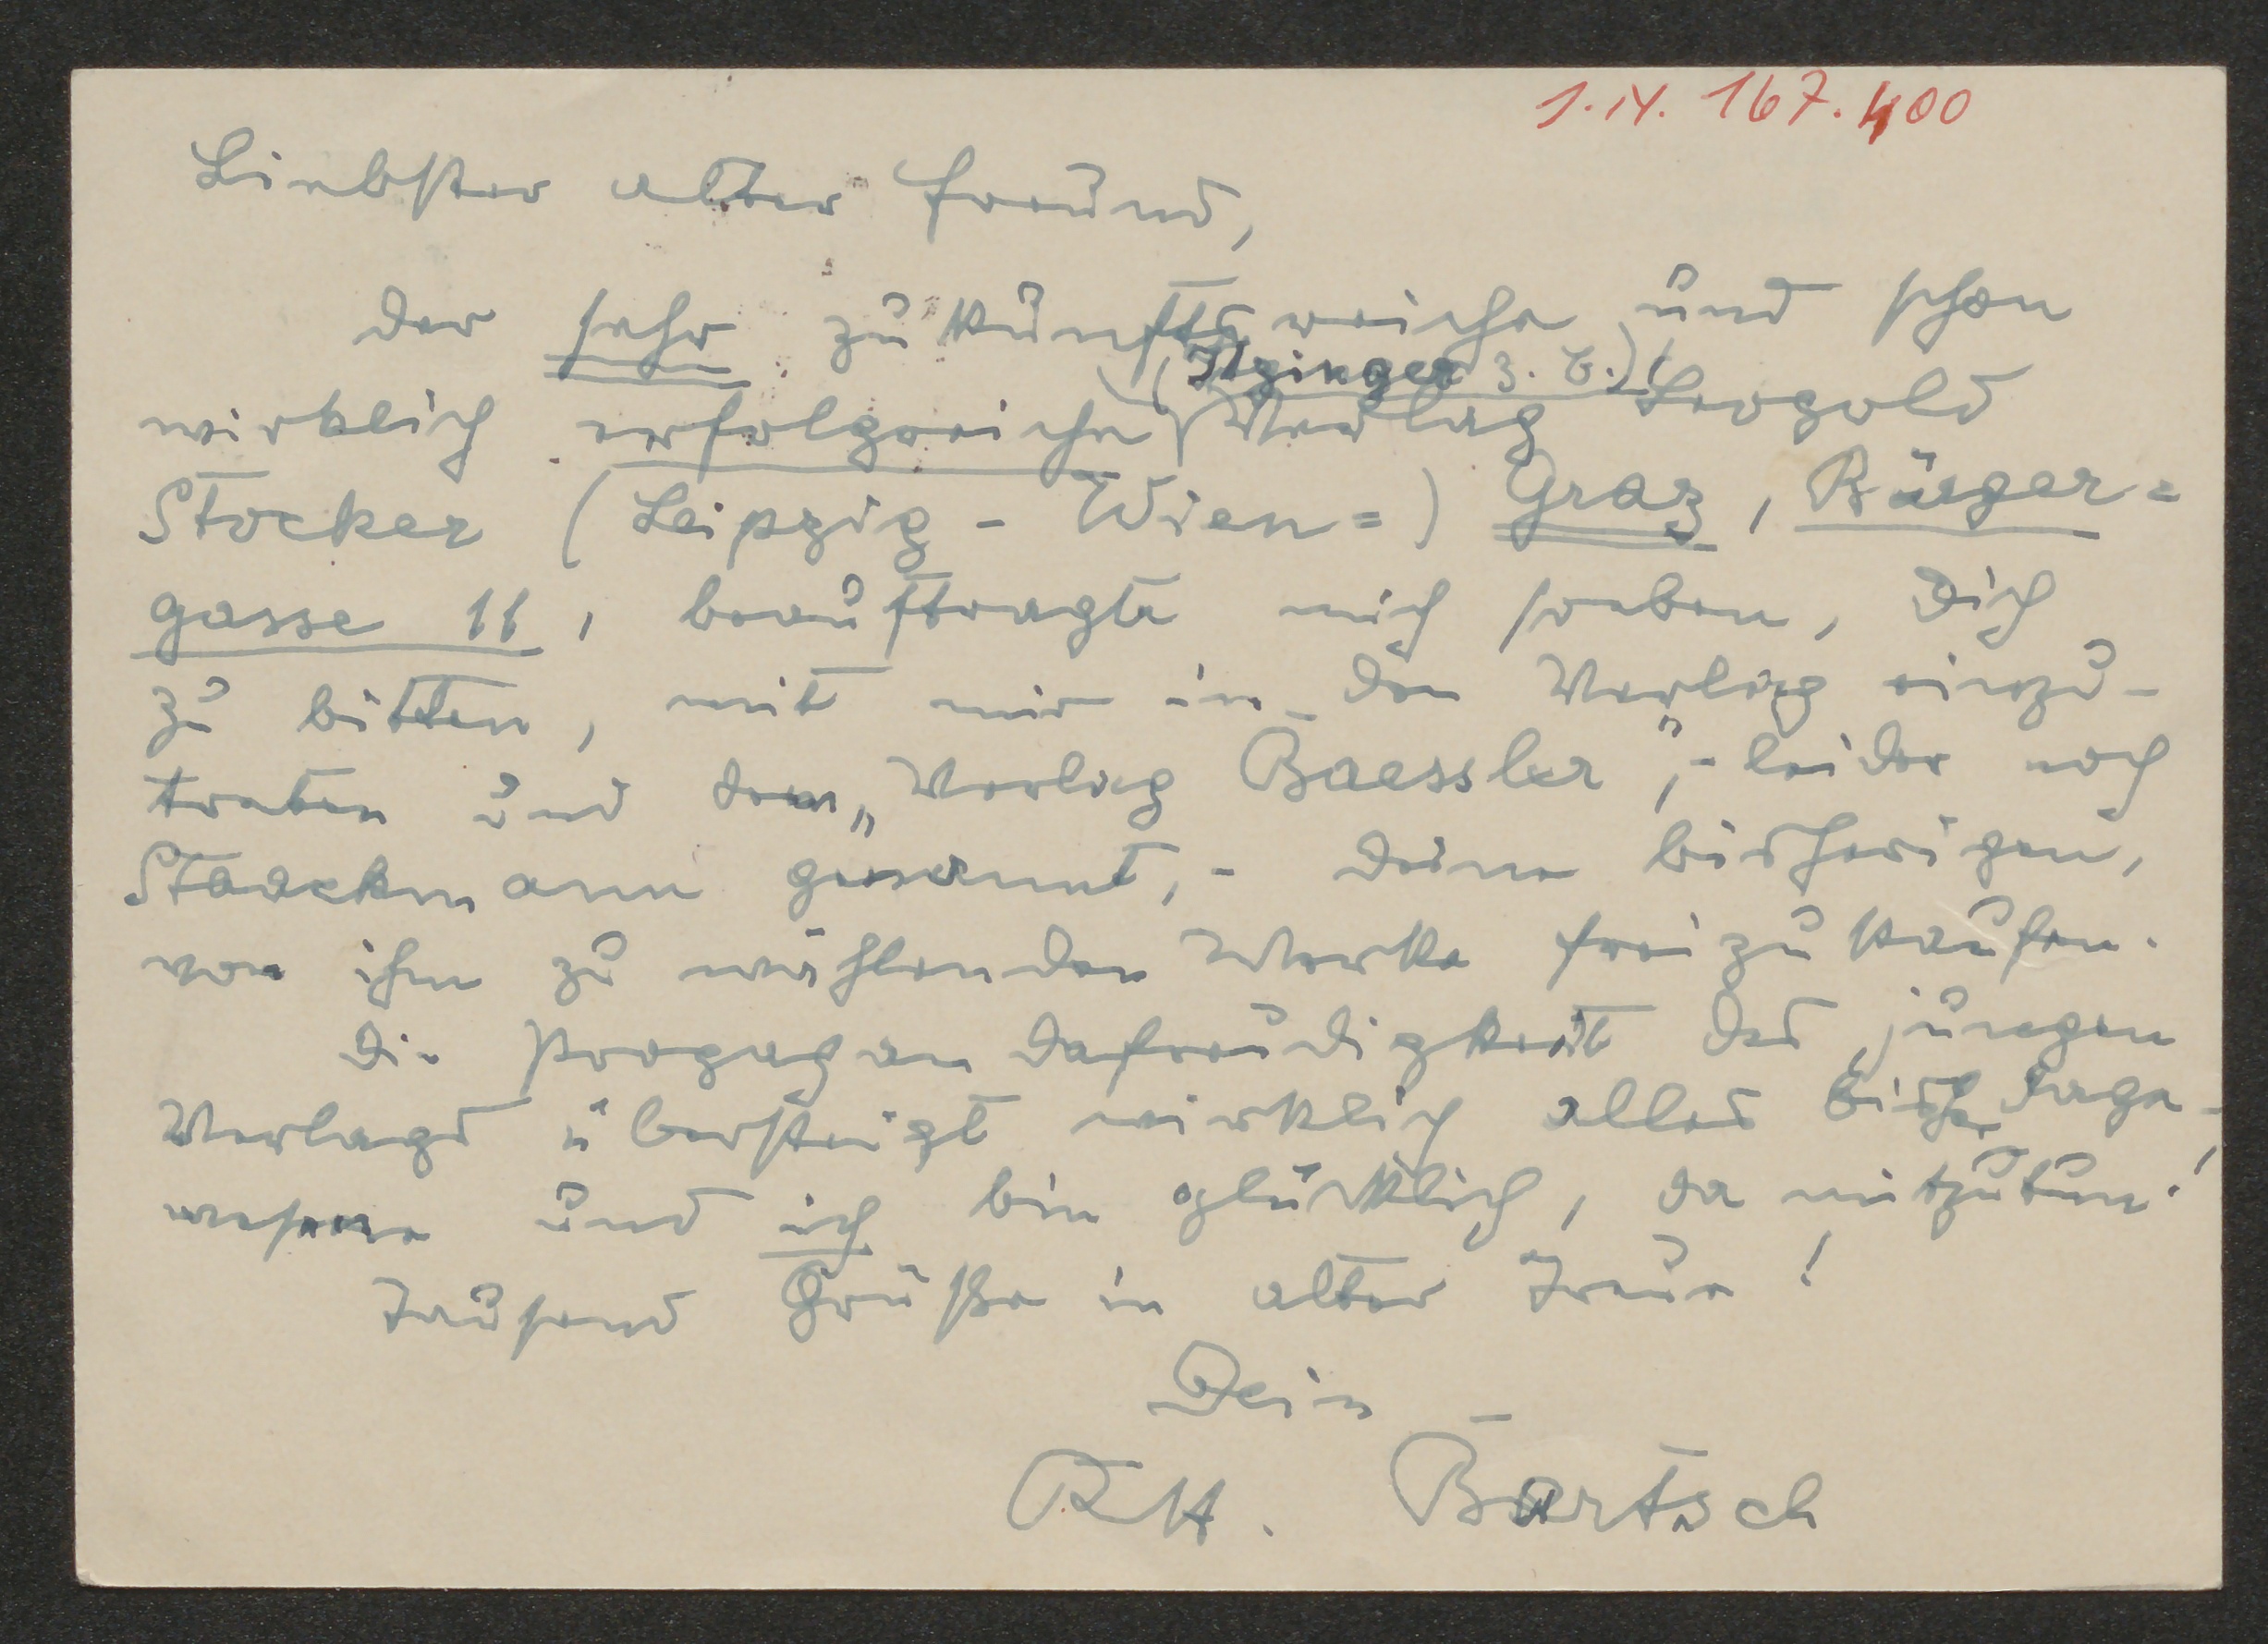 1.IX. 167.400
Liebster alter Freund,
der sehr zukunftsreiche und schon
(Itzinger z. B.)
wirklich erfolgreiche Verlag Leopold
Stocker (Leipzig - Wien=) Graz, Bürger=
gasse 11, beauftragte mich soeben, Dich
zu bitten, mit mir in den Verlag einzu-
treten und dem „Verlag Baessler", - leider noch
Staackmann genannt, - Deine bisherigen,
von ihm zu wählenden Werke freizukaufen.
Die Propagandafreudigkeit des jungen
Verlags übersteigt wirklich alles bisher Dage-
wesene und ich bin glücklich, da mitzutun!
Tausend Grüße in alter Treue!
Dein
RH. Bartsch